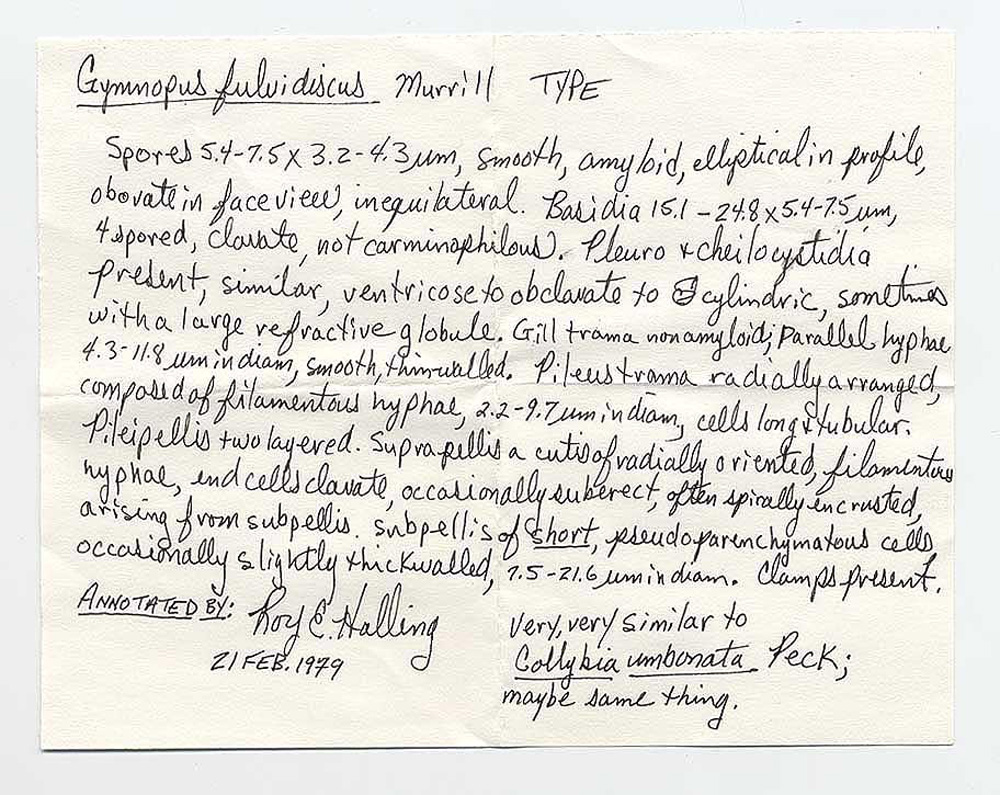 Gymnopus fulvidiscus Murrill TYPE
Spores 5.4-7.5 x 3.2-4.3 µm, smooth, amyloid, elliptical in profile,
obovate in face view, inequilateral. Basidia 15.1 - 24.8 x 5.4-7.5 µm,
4 spored, clavate, not carminophilous. Pleuro & cheilocystidia
present, similar, ventricose to obclavate to cylindric, sometimes
with a large refractive globule. Gill trama nonamyloid; parallel hyphae
4.3-11.8 µm in diam, smooth, thinwalled. Pileus trama radially arranged,
composed of filamentous hyphae, 2.2-9.7 µm in diam, cells long & tubular.
Pileipellis two layered. Suprapellis a cutis of radially oriented, filamentous
hyphae, end cells clavate, occasionally suberect, often spirally encrusted,
arising from subpellis. Subpellis of short, pseudoparenchymatous cells
occasionally slightly thickwalled, 7.5-21.6 µm in diam. Clamps present.
ANNOTATED BY: Roy E. Halling
21 FEB. 1979
Very, very similar to
Collybia umbonata Peck;
maybe same thing.